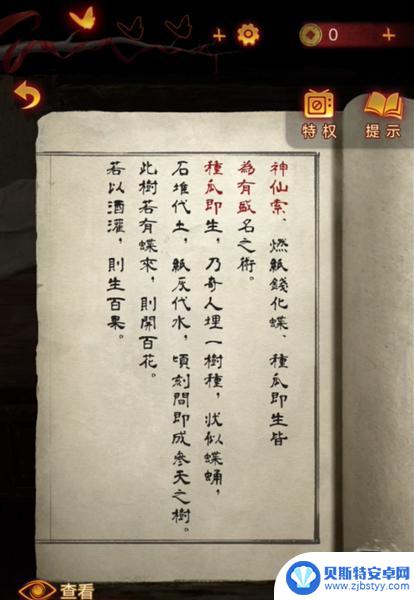 0
特权
提示
神仙索、燃紙錢化蝶、種瓜即生皆
為有盛名之術。
種瓜即生，乃奇人埋一樹種，狀似蝶蛹，
石堆代土，紙灰代水，頃刻間即成參天之樹。
此樹若有蝶來，則開百花。
若以酒灌，則生百果。
查看
贝斯特安卓网
www.zjbstyy.com